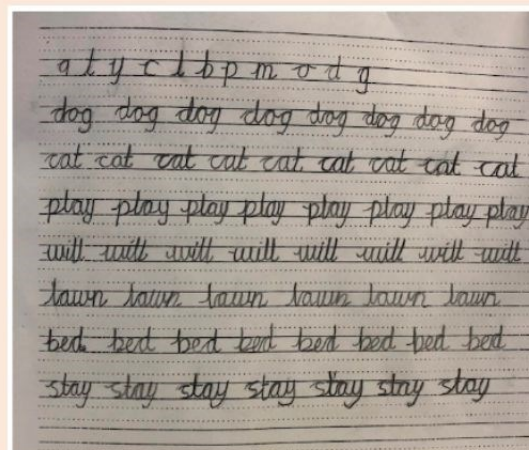 a t y c l b p m o d g
dog dog dog dog dog dog dog dog
cat cat cat cat cat cat cat cat cat
play play play play play play play play
will will will will will will will will
lawn lawn lawn lawn lawn lawn
bed bed bed bed bed bed bed bed
stay stay stay stay stay stay stay